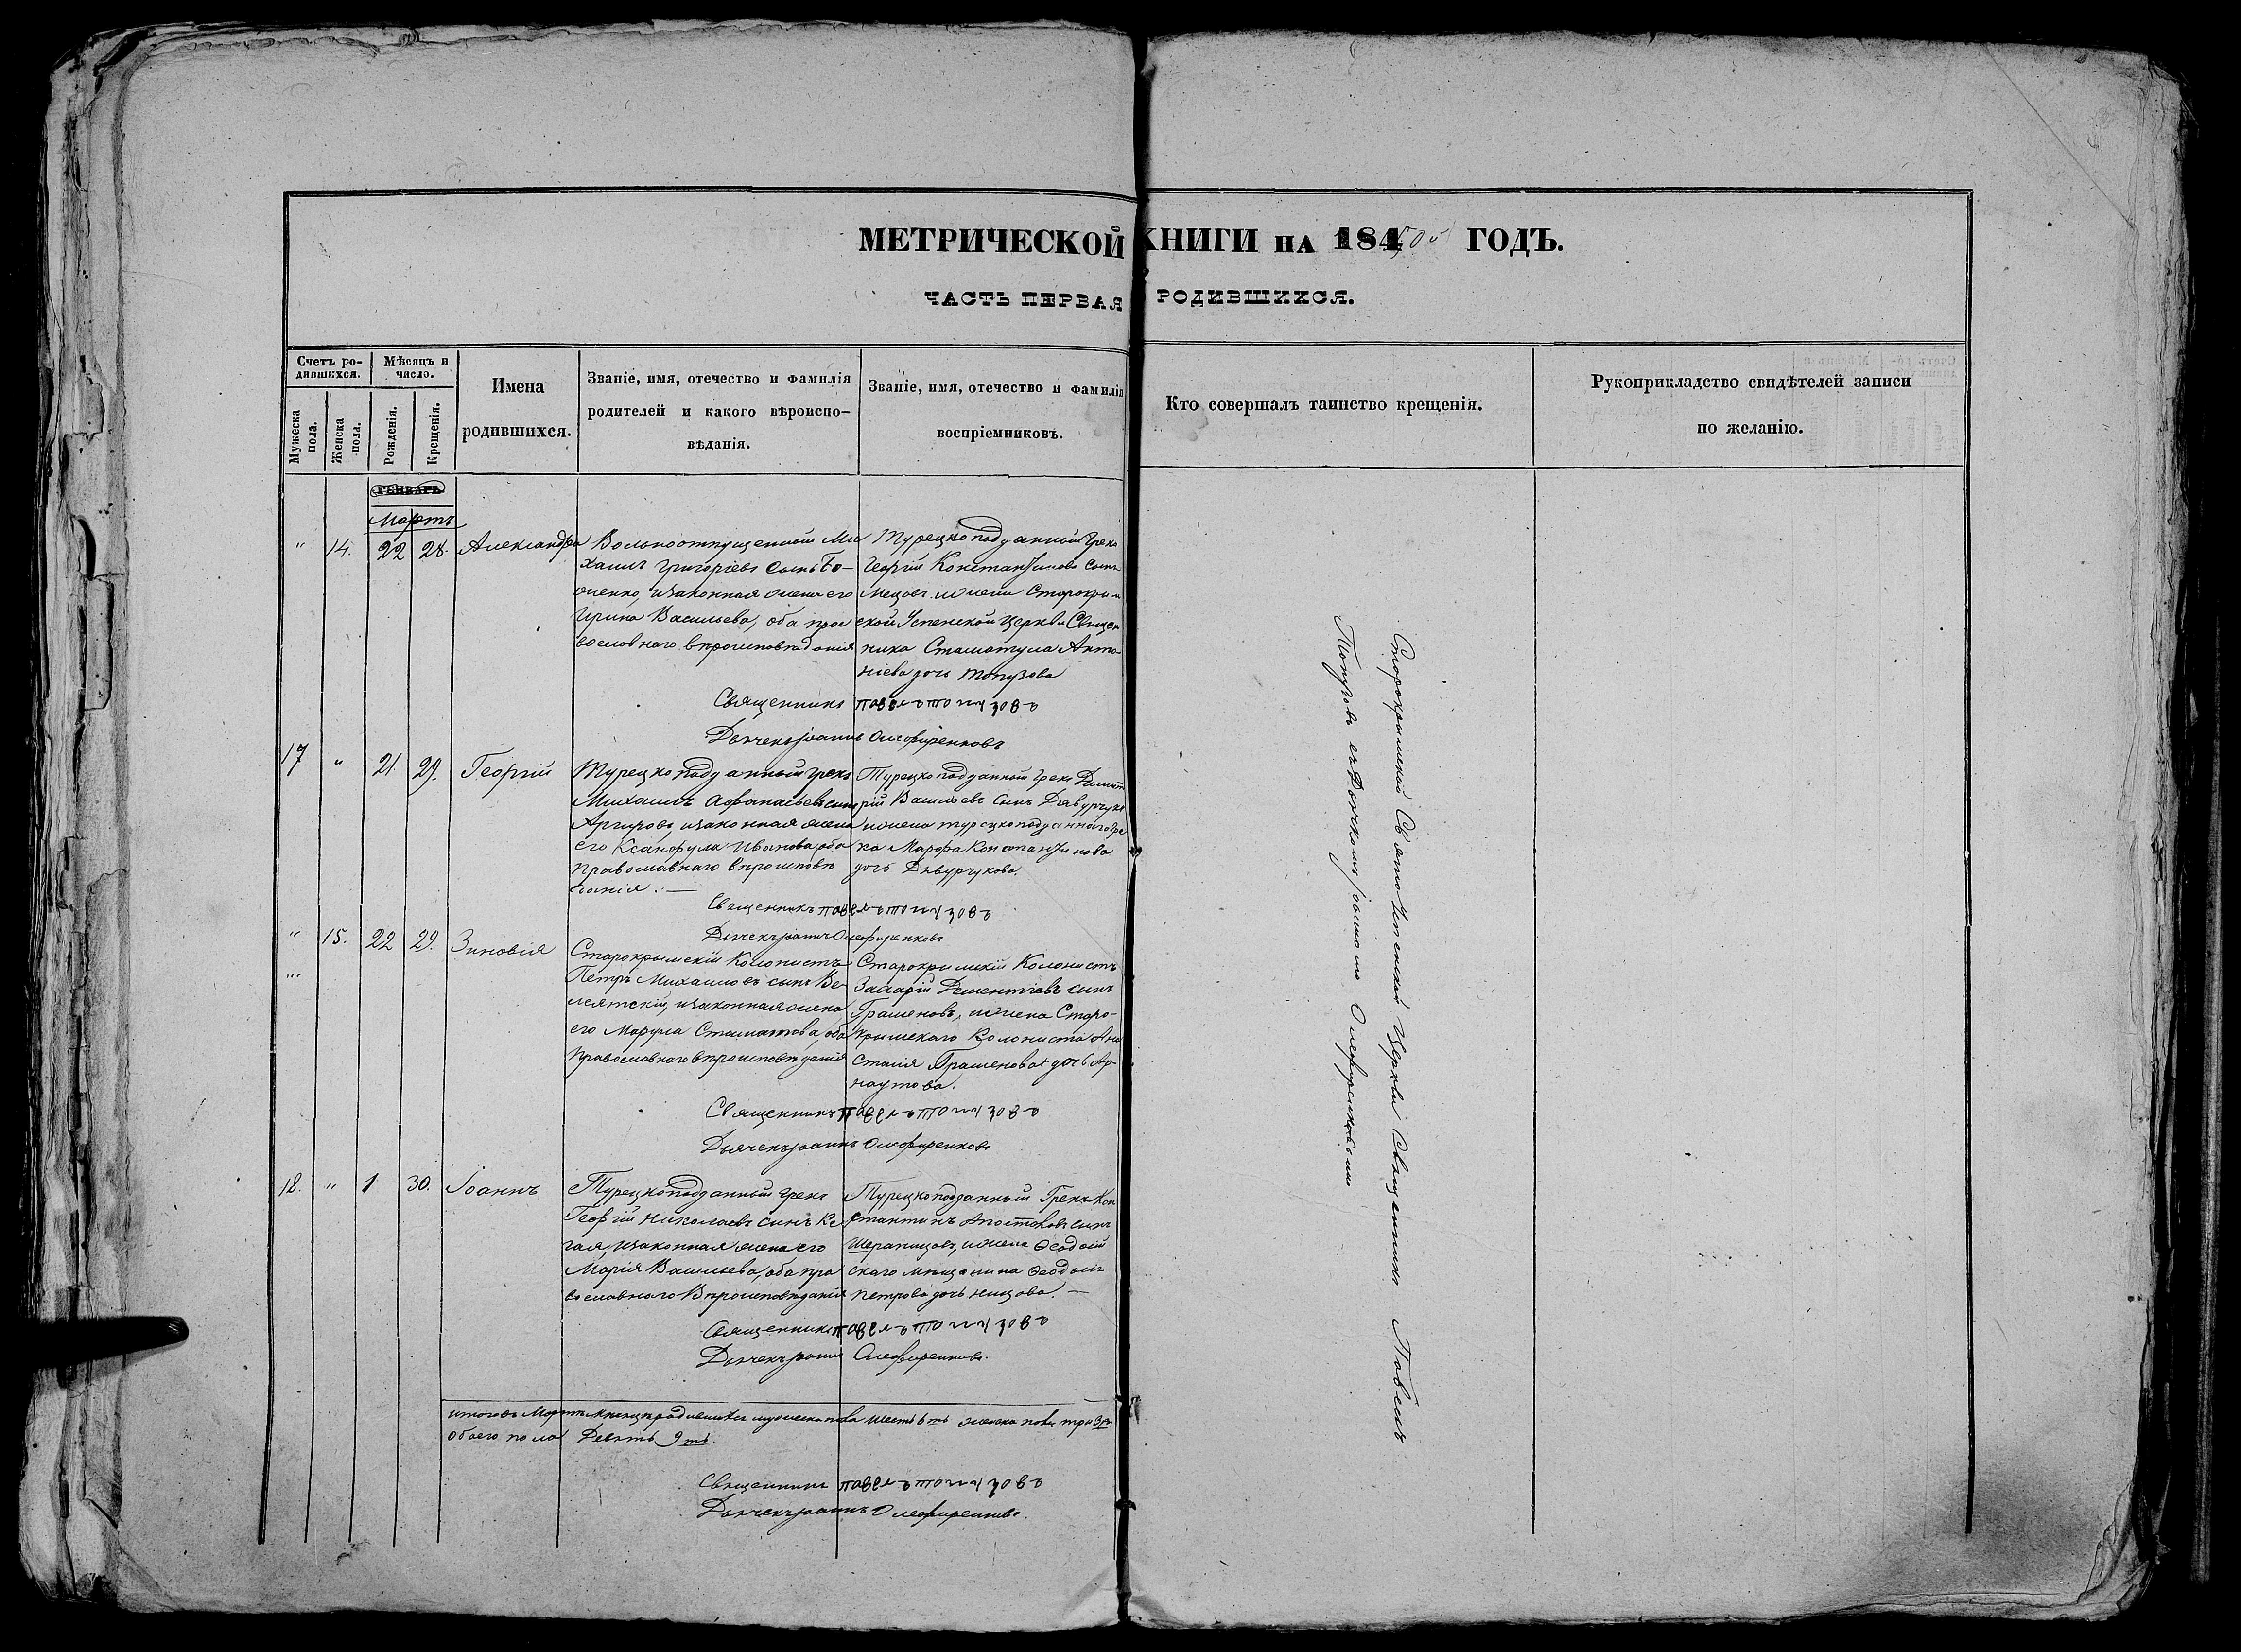 МЕТРИЧЕСКОЙ КНИГИ НА 184 ГОДЪ.
ЧАСТЬ ПЕРВАЯ РОДИВШИХСЯ.
Счетъ ро-
дившихся.
Мужеска
пола.
Женска
пола.
Мѣсяцъ и
число.
Рожденія.
Крещенія.
Имена
родившихся.
Званіе, имя, отечество и фамилія
родителей и какого вѣроиспо-
вѣданія.
Званіе, имя, отечество и фамилія
воспріемниковъ.
Кто совершалъ таинство крещенія.
Рукоприкладство свидѣтелей записи
по желанію.
ГЕНВАРЬ
Мартъ
" 14. 22 28. Александра
Вольноотпущенный Ми
хаилъ Григоріевъ сынъ
женко, и законная жена его
Ирина Васильева, оба пра
вославнаго вѣроисповѣданія
Турецкоподданный Грекъ
Георгій Константиновъ сынъ
и жена Старокрым
ской Успенской Церкви Священ
ника Стаматула Анто
ніева дочь Топузова
Священникъ Павелъ Топузовъ
Дьячекъ Іоаннъ Олефиренковъ
17 " 21. 29. Георгій
Турецкоподданный Грекъ
Михаилъ Афанасьевъ сынъ
Аргировъ, и законная жена
его Ксанфула Иванова, оба
Православнаго вѣроисповѣ
данія. —
Турецкоподданный Грекъ Димит
рій Васильевъ сынъ
и жена турецкоподданнаго Гре
ка Марфа Константинова
дочь
Священникъ Павелъ Топузовъ
Дьячекъ Іоаннъ Олефиренковъ
" 15. 22 29. Зиновія
Старокрымскій Колонистъ
Петръ Михаиловъ сынъ Ве-
и законная жена
его Марула Стаматова, оба
Православнаго вѣроисповѣданія
Старокрымскій Колонистъ
Захарій Дементіевъ сынъ
Граменовъ, и жена Старо-
крымскаго Колониста Ана
стасія Граменова дочь Ар-
наутова.
Священникъ Павелъ Топузовъ
Дьячекъ Іоаннъ Олефиренковъ
18. " 1 30. Іоаннъ
Турецкоподданный Грекъ
Георгій Николаевъ сынъ Ке
гая, и законная жена его
Марія Васильева, оба пра
вославнаго Вѣроисповѣданія
Турецкоподданный Грекъ Кон
стантинъ Апостоловъ сынъ
и жена Ѳеодосій
скаго мѣщанина
Петрова дочь
Священникъ Павелъ Топузовъ
Дьячекъ Іоаннъ Олефиренковъ.
итого въ Мартѣ мѣсяцѣ родившихся мужеска пола шесть 6 ть женска пола три 3 и
обоего пола Девять 9 ть.
Священникъ Павелъ Топузовъ
Дьячекъ Іоаннъ Олефиренковъ.
Старокрымской Свято Успенской Церкви Священникъ Павелъ
Топузовъ съ Дьячкомъ Іоанномъ Олефиренковымъ